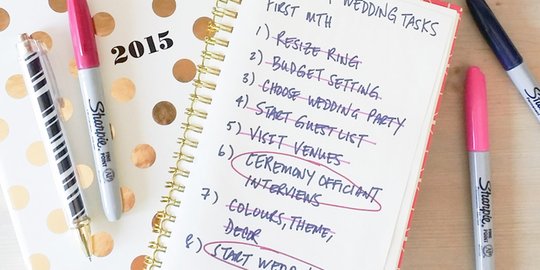 2015
Sharpie
WEDDING TASKS
FIRST MTH
1) RESIZE RING
2) BUDGET SETTING
3) CHOOSE WEDDING PARTY
4) START GUEST LIST
5) VISIT VENUES
6) CEREMONY OFFICIANT
INTERVIEWS
7) COLOURS, THEME,
DECOR
8) START
Sharpie